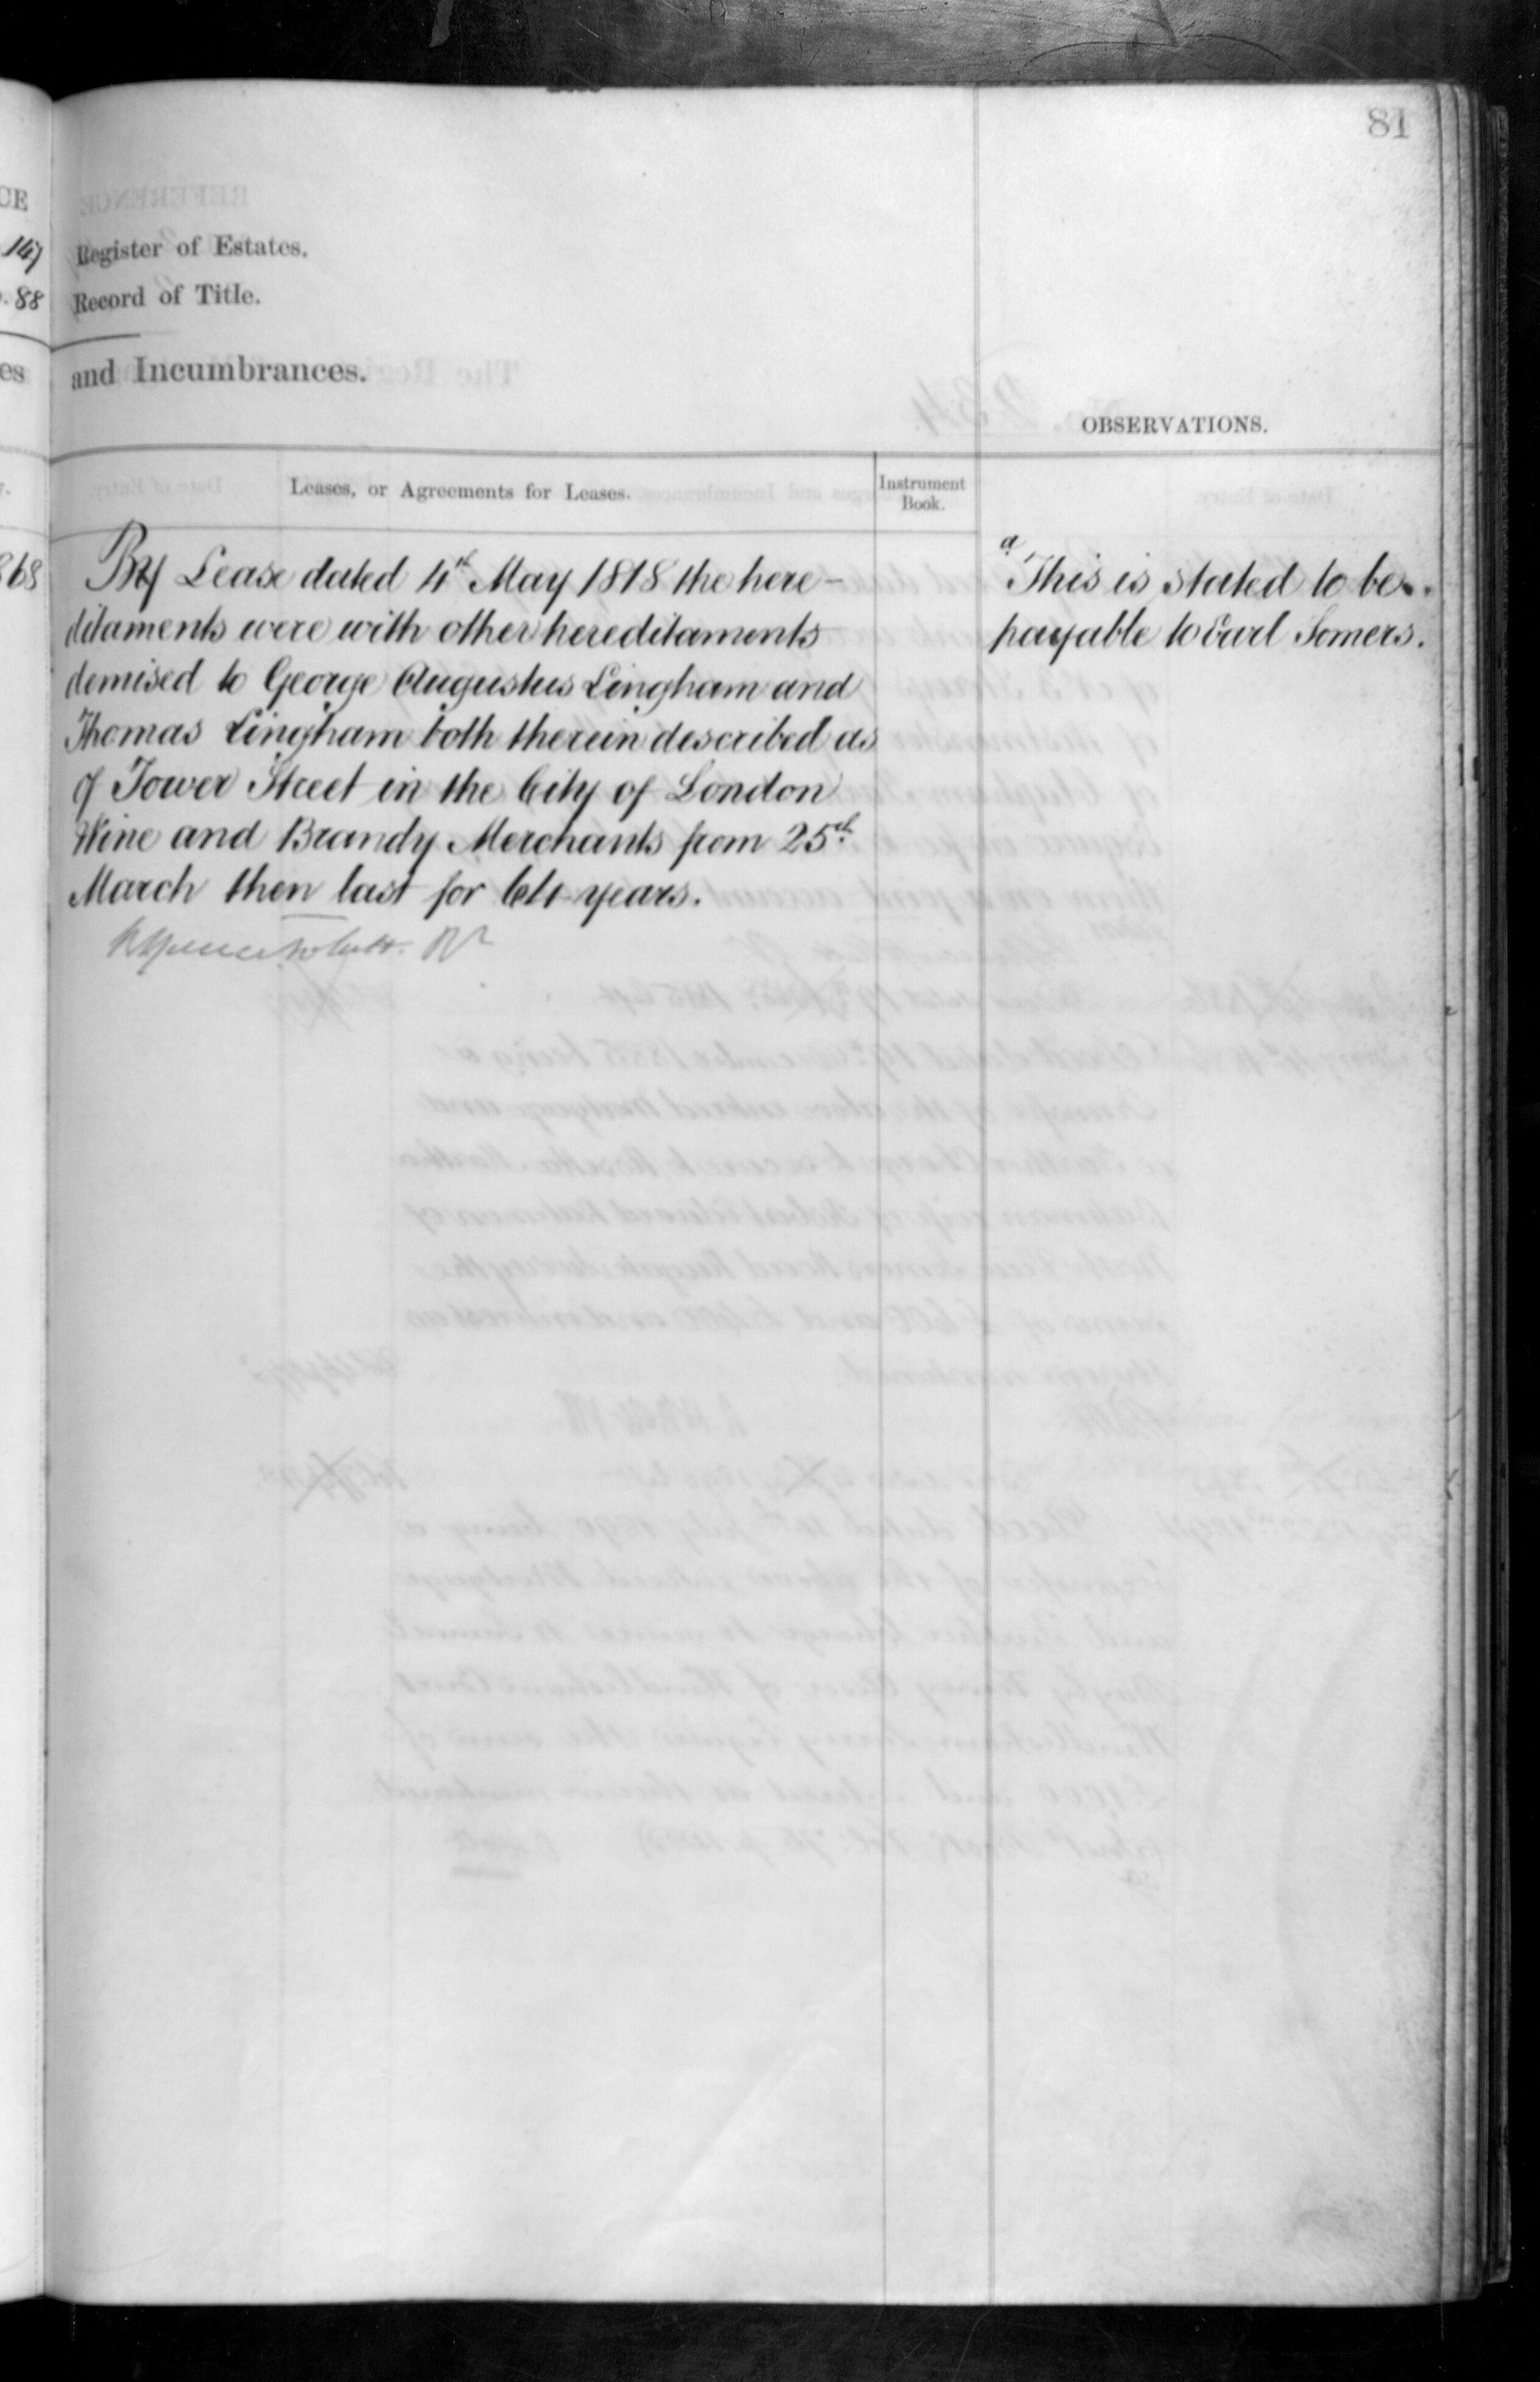 81
CE
147
Register of Estates.
. 88
Record of Title.
es
and Incumbrances.
OBSERVATIONS.
Leases, or Agreements for Leases.
Instrument
Book.
868
By Lease dated 4th May 1818 the here-
ditaments were with other hereditaments
demised to George Augustus Lingham and
Thomas Lingham both therein described as
of Tower Street in the City of London
Wine and Brandy Merchants from 25th
March then last for 61 years.
a
This is stated to be
payable to Earl Somers.